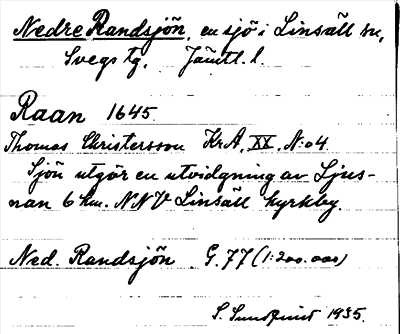 Nedre Randsjön, en sjö i Linsäll sn,
Svegs tg, Jämtl. l.
Raan 1645
Thomas Christersson KrA, XX, N:o 4.
Sjön utgör en utvidgning av Ljus-
nan 6 km. NNV Linsäll kyrkby.
Ned. Randsjön G. 77 (1:200.000)
S. Sundquist 1935.